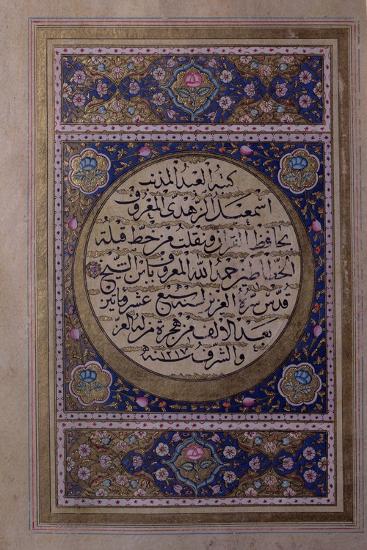 كتبه العبد المذنب
اسمعيل الزهدي المعروف
بحافظ القرآن ونقلت من خط قبلة
الخطاطين رحمه الله المعروف بابن الشيخ
قدس سره العزيز لسنة سبع عشر وماتين
بعد الالف من هجرة من له العز
والشرف سنه ١٢١٧